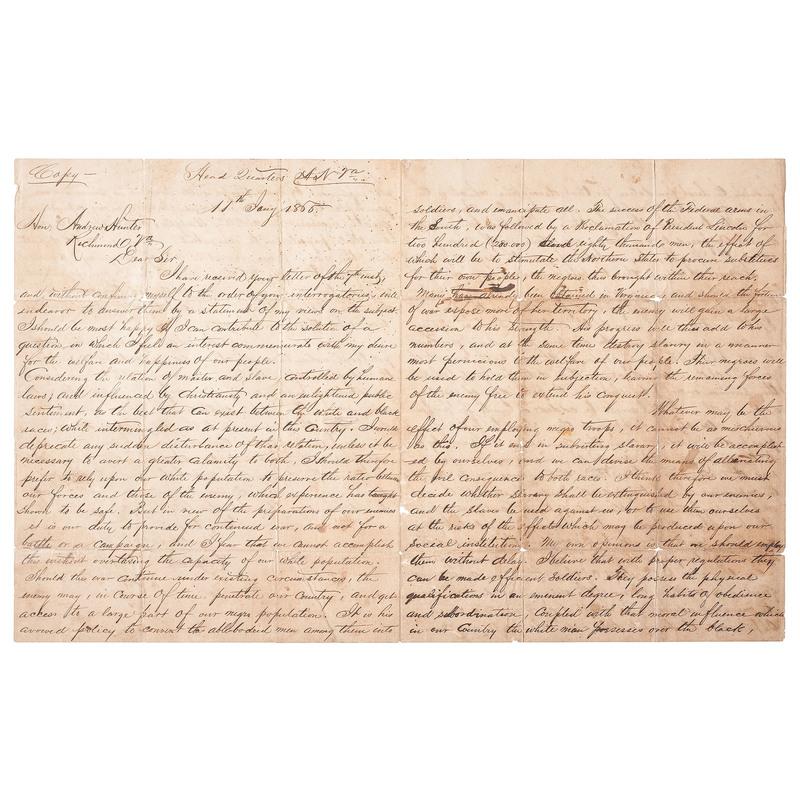 Copy —
Head Quarters A. N. Va.
11th Jany 1865.
Hon. Andrew Hunter
Richmond Va
Dear Sir
I have received your letter of the 7th inst,
and without confining myself to the order of your interrogatories, will
endeavor to answer them by a statement of my views on the subject.
I should be most happy if I can contribute to the solution of a
question in which I feel an interest commensurate with my desire
for the welfare and happiness of our people.
Considering the relation of master and slave, controlled by humane
laws, and influenced by Christianity and an enlightened public
sentiment, as the best that can exist between the white and black
races, while intermingled as at present in this Country, I would
deprecate any sudden disturbance of that relation, unless it be
necessary to avert a greater calamity to both, I should therefore
prefer to rely upon our white population to preserve the ratio between
our forces and those of the enemy, which experience has
shown to be safe. But in view of the preparations of our enemies
it is our duty to provide for continued war, and not for a
battle or a campaign, and I fear that we cannot accomplish
this without overtaxing the capacity of our white population.
Should the war continue under existing circumstances, the
enemy may, in Course of time penetrate our Country, and get
access to a large part of our negro population. It is his
avowed policy to convert the ablebodied men among them into
soldiers, and emancipate all. The success of the Federal arms in
the South, was followed by a Proclamation of President Lincoln for
two hundred (200.000) eighty thousand men, the effect of
which will be to stimulate the Northern States to procure substitutes
for their own people, the negroes thus brought within their reach.
Many have already been obtained in Virginia, and should the fortune
of war expose more of her territory, the enemy will gain a large
accession to his strength. His progress will thus add to his
numbers, and at the same time destroy slavery in a manner
most pernicious to the welfare of our people. Their negroes will
be used to hold them in subjection, leaving the remaining forces
of the enemy free to extend his Conquest.
Whatever may be the
effect of our employing negro troops, it cannot be as mischievous
as this. If it end in subverting slavery, it will be accomplish-
ed by ourselves, and we can devise the means of alleviating
the evil consequences to both races. I think therefore we must
decide whether slavery shall be extinguished by our enemies,
and the slaves be used against us, or to use them ourselves
at the risks of the effects which may be produced upon our
social institutions. My own opinions is that we should employ
them without delay. I believe that with proper regulations they
can be made efficient soldiers. They possess the physical
qualifications in an eminent degree, long habits of obedience
and subordination Coupled with that moral influence which
in our Country the white man possesses over the black,